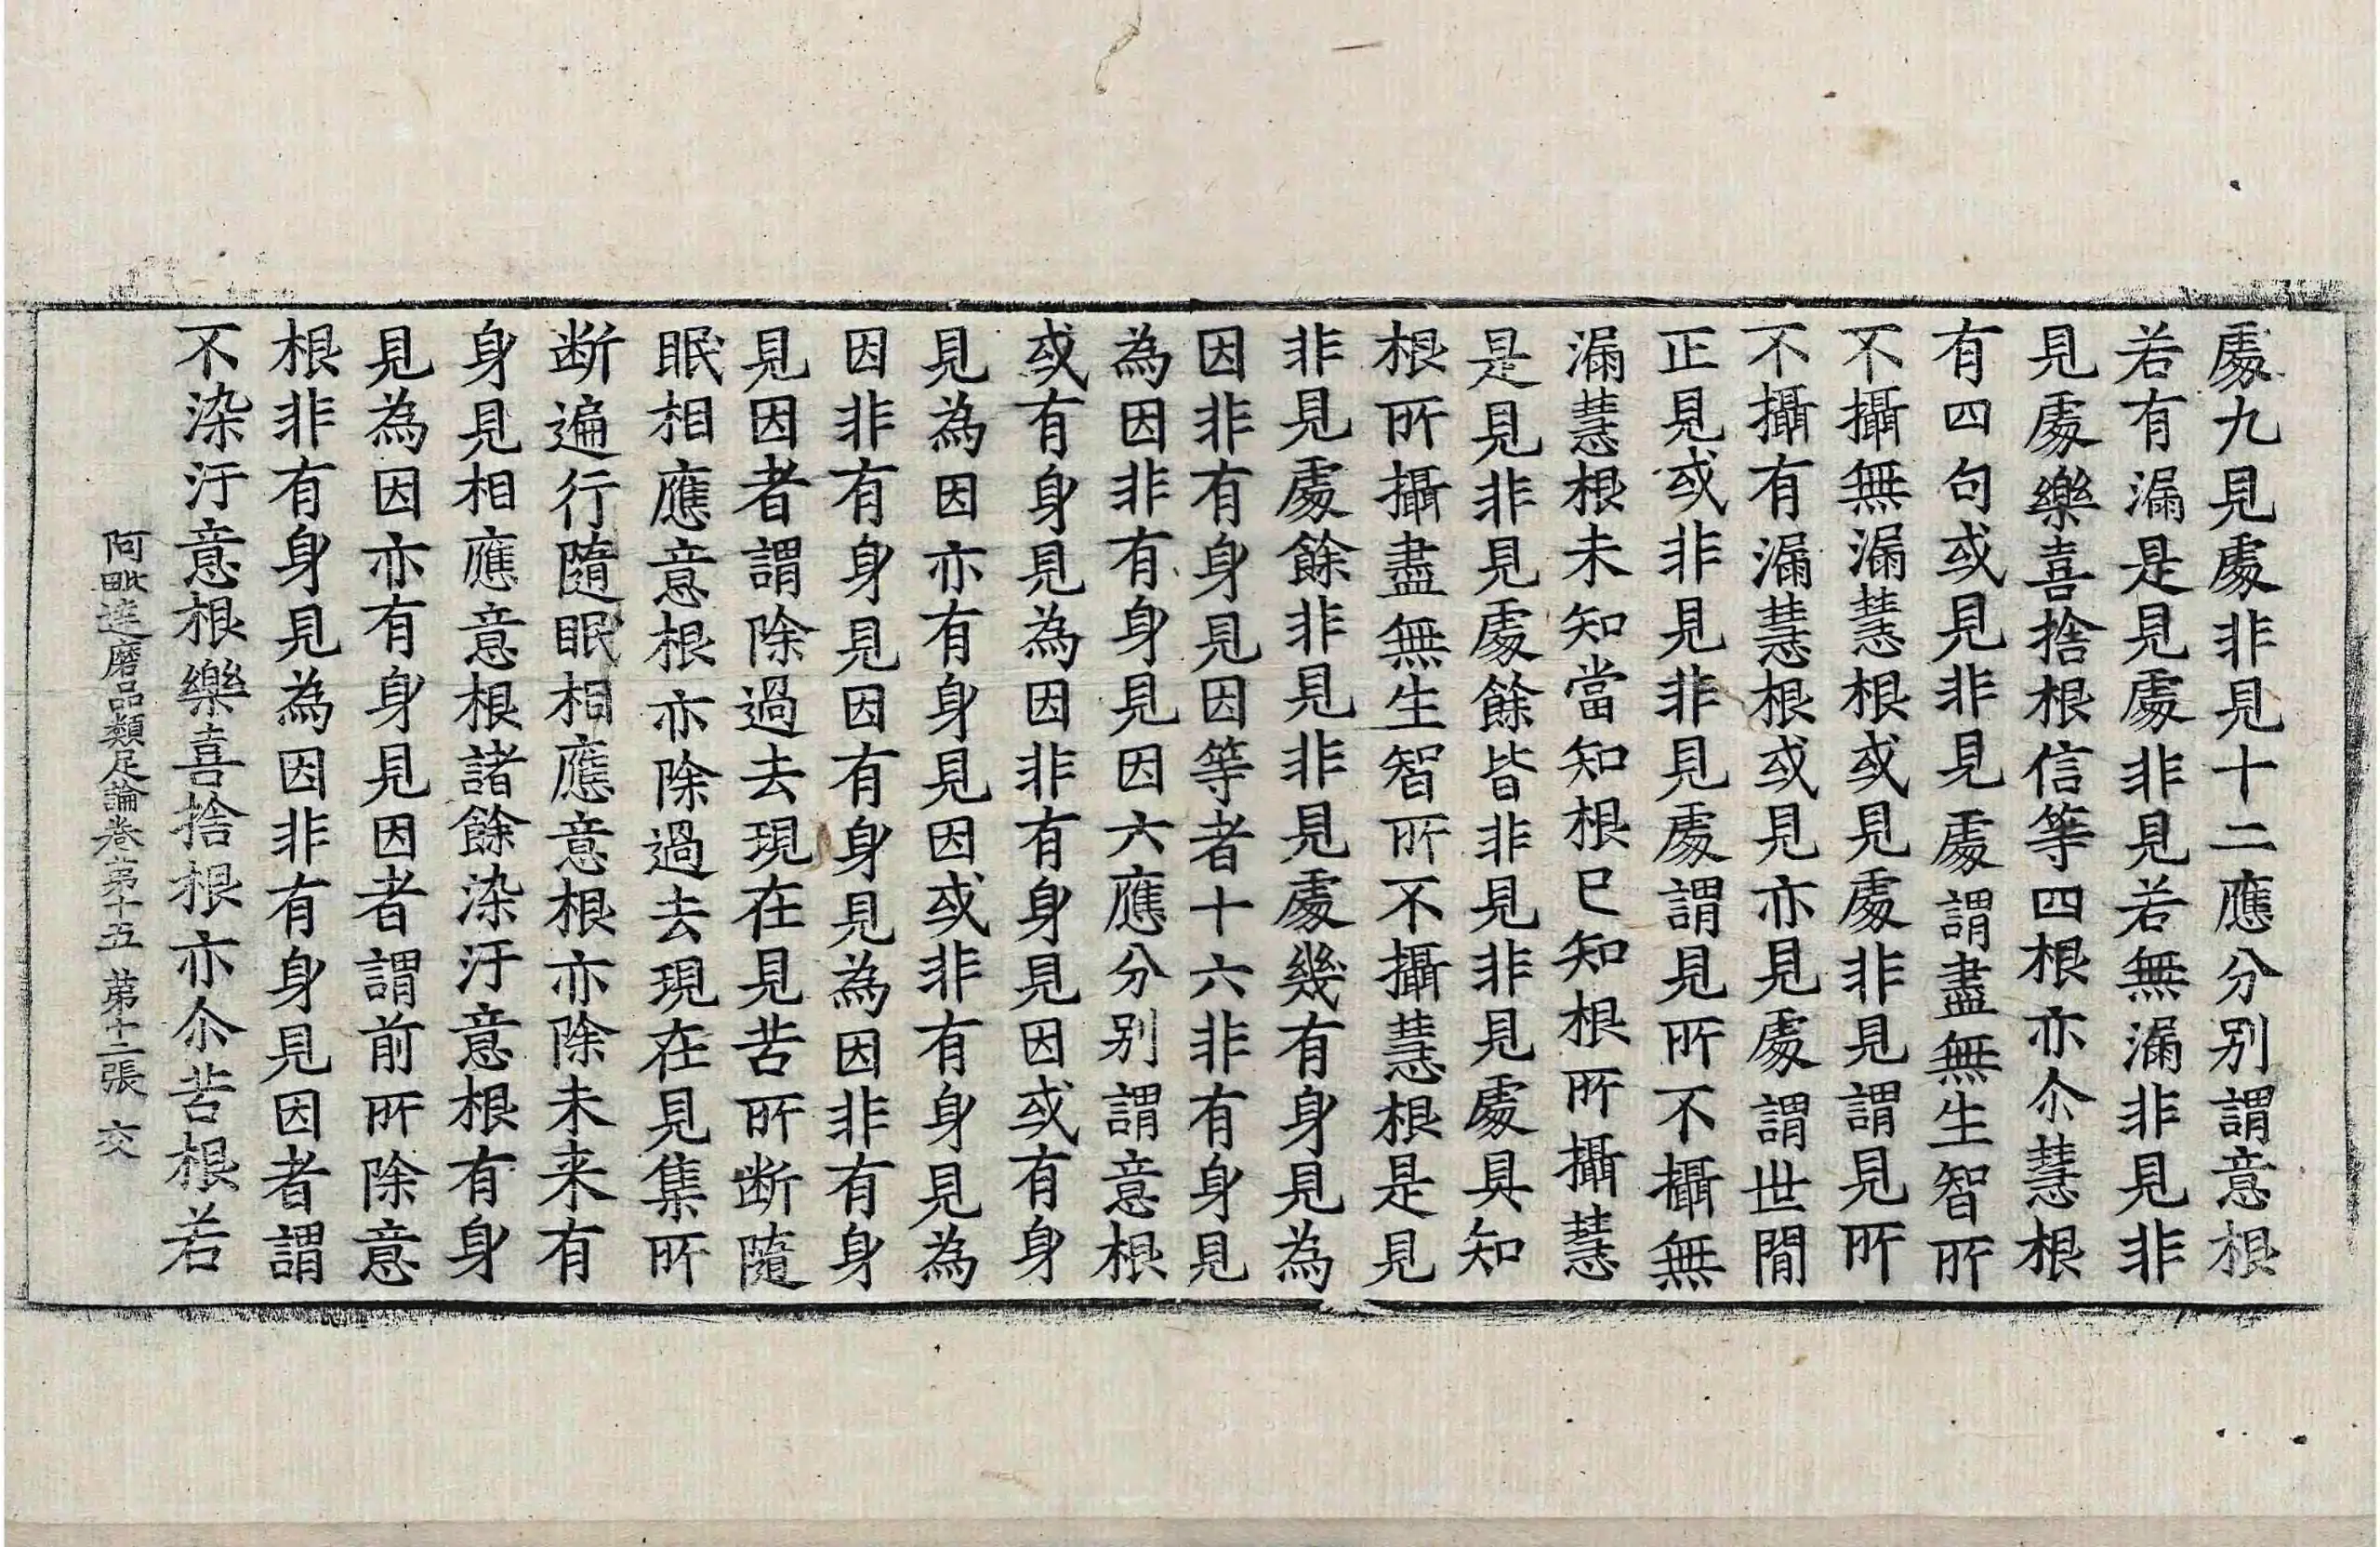 處九見處非見十二應分別謂意根
若有漏是見處非見若無漏非見非
見處樂喜捨根信等四根亦尒慧根
有四句或見非見處謂盡無生智所
不攝無漏慧根或見處非見謂見所
不攝有漏慧根或見亦見處謂世間
正見或非見非見處謂見所不攝無
漏慧根未知當知根已知根所攝慧
是見非見處餘皆非見非見處具知
根所攝盡無生智所不攝慧根是見
非見處餘非見非見處幾有身見為
因非有身見因等者十六非有身見
為因非有身見因六應分別謂意根
或有身見為因非有身見因或有身
見為因亦有身見因或非有身見為
因非有身見因有身見為因非有身
見因者謂除過去現在見苦所断隨
眠相應意根亦除過去現在見集所
断遍行隨眠相應意根亦除未来有
身見相應意根諸餘染汙意根有身
見為因亦有身見因者謂前所除意
根非有身見為因非有身見因者謂
不染汙意根樂喜捨根亦尒苦根若
阿毗達磨品類足論卷苐十五 苐十二張 交